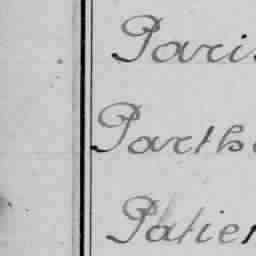 Paris
Parthe
Patien